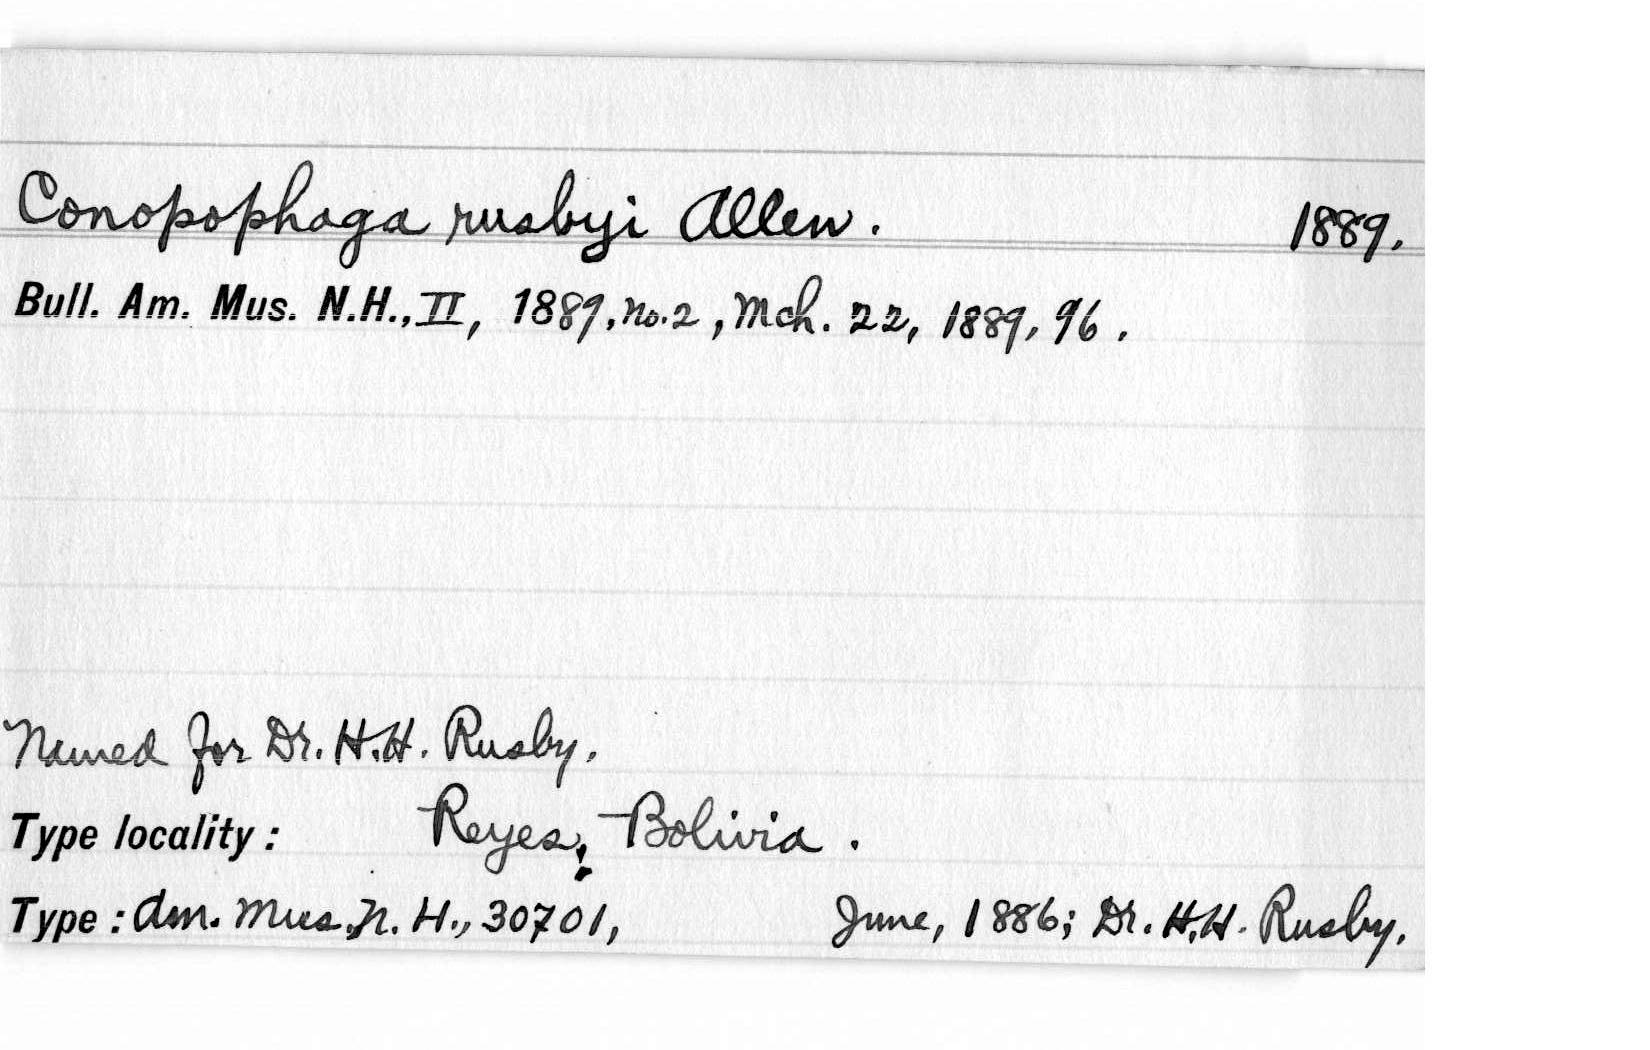 Conopophaga rusbyi Allen. 1889.
Bull. Am. Mus. N.H., II, 1889, no. 2, Mch. 22, 1889, 96.
Named for Dr. H.H. Rusby.
Type locality: Reyes, Bolivia.
Type: Am. Mus. N. H., 30701, June, 1886; Dr. H.H. Rusby.